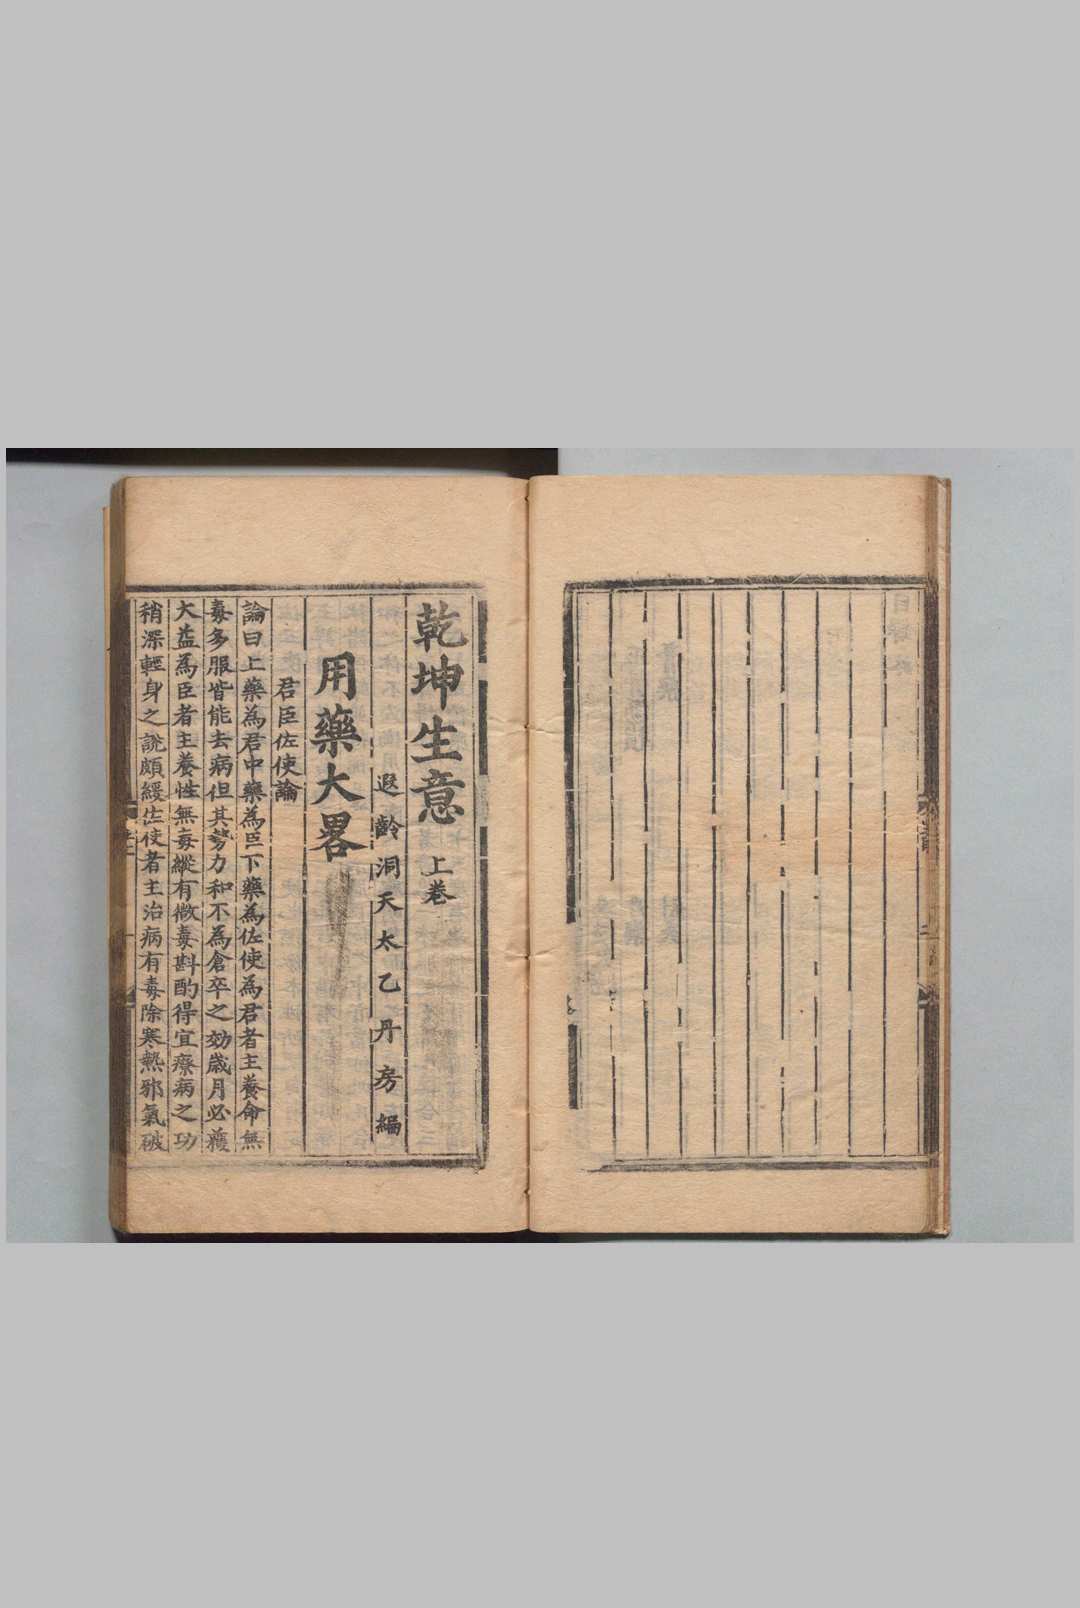 乾坤生意 上卷
遐齡洞天太乙丹房編
用藥大畧
君臣佐使論
論曰上藥為君中藥為臣下藥為佐使為君者主養命無
毒多服皆能去病但其勢力和不為倉卒之効歲月必獲
大益為臣者主養性無毒縱有微毒斟酌得宜療病之功
稍深輕身之說頗緩佐使者主治病有毒除寒熱邪氣破